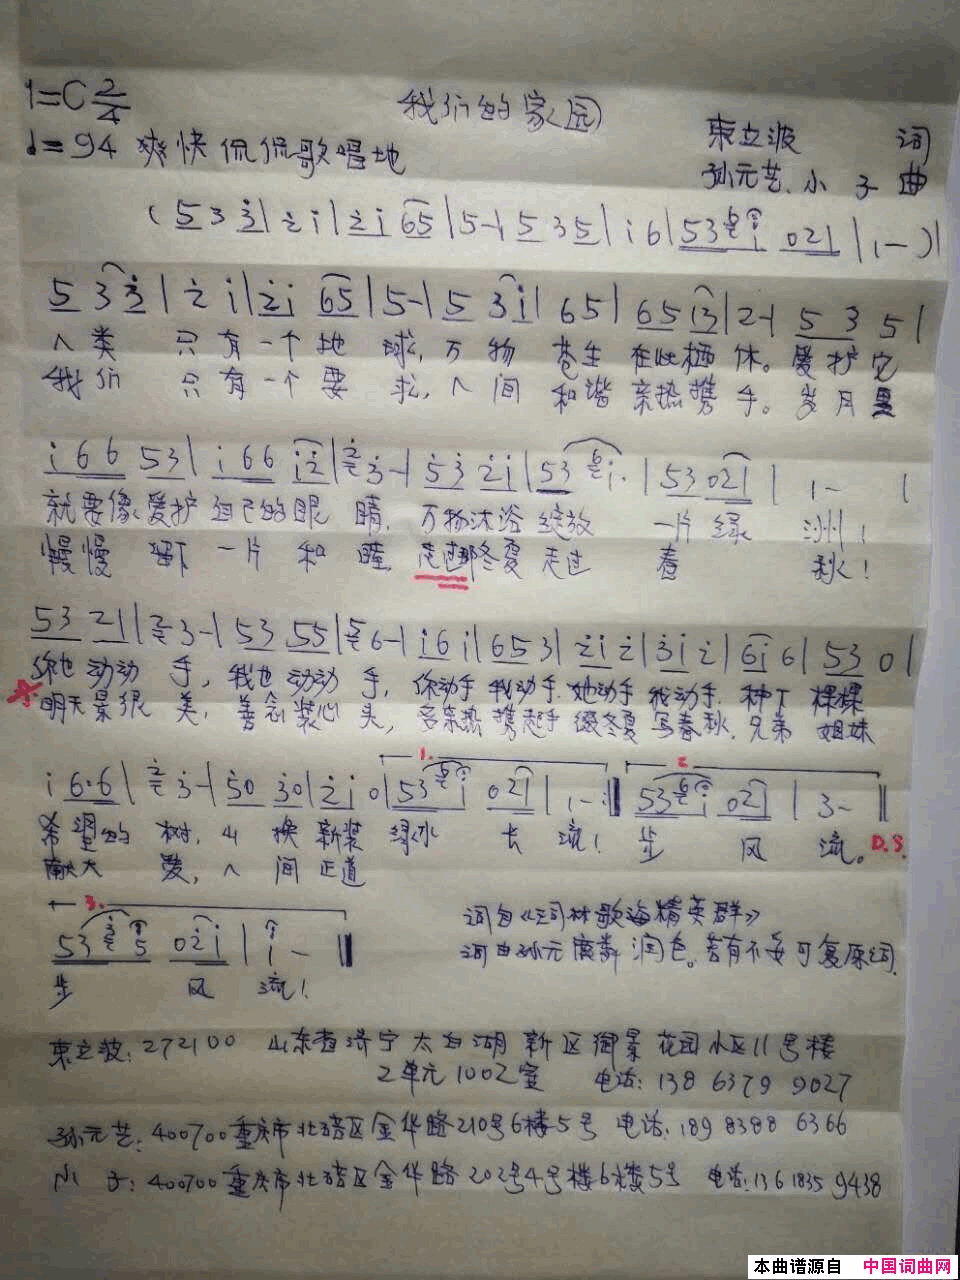 1=C 2/4
我们的家园
♩=94 爽快侃侃歌唱地
束立波 词
孙元艺、小子 曲
(5 3 3̇ | 2̇ i | 2̇ i 65 | 5 - | 5 35 | i 6 | 53 i 021 | 1 - )|
5 3 3̇ | 2̇ i | 2̇i 65 | 5 - | 5 3 i | 65 | 65 13 | 2 - | 5 3 5 |
人类 只有一个地 球, 万物 苍生 在此栖 休。爱护它
我们 只有一个要 求, 人间 和谐 亲热携 手。岁月里
i 66 53 | i 66 i2̇ | 3̇ - | 5̇3̇ 2̇i | 53 i. | 53 021 | 1 - |
就要像爱护自己的眼 睛, 万物沐浴 绽放 一片绿 洲!
慢慢 留下 一片 和 睦, 走过那冬夏 走过 春 秋!
53 21 | 3 - | 53 55 | 6 - | i 6 i | 65 3 | 2̇i 2̇ | 3̇i 2̇ | 6i 6 | 53 0 |
你也动动 手, 我也动动 手, 你动手 我动手, 她动手 我动手, 种下 棵棵
明天景很 美, 善念装心 头, 多亲热 携起手 缀冬夏 写春秋, 兄弟 姐妹
i 6·6 | 3̇ - | 5̇0 3̇0 | 2̇i 0 | 53 i 021 | 1 - :‖ 53 i 021 | 3 - ‖
1. 2.
希望的 树, 山 换 新装 绿水 长 流! 步 风 流。D.S.
献大 爱, 人 间 正道
3.
53 5 02̇i | i - ‖
步 风 流!
词自《词林歌海精英群》
词由孙元 润色。若有不妥可复原词.
束立波: 272100 山东省济宁太白湖新区御景花园小区11号楼
2单元1002室 电话: 138 6379 9027
孙元艺: 400700重庆市北碚区金华路210号6楼5号 电话: 189 8388 6366
小 子: 400700重庆市北碚区金华路202号4号楼6楼5号 电话: 136 1835 9438
本曲谱源自 中国词曲网